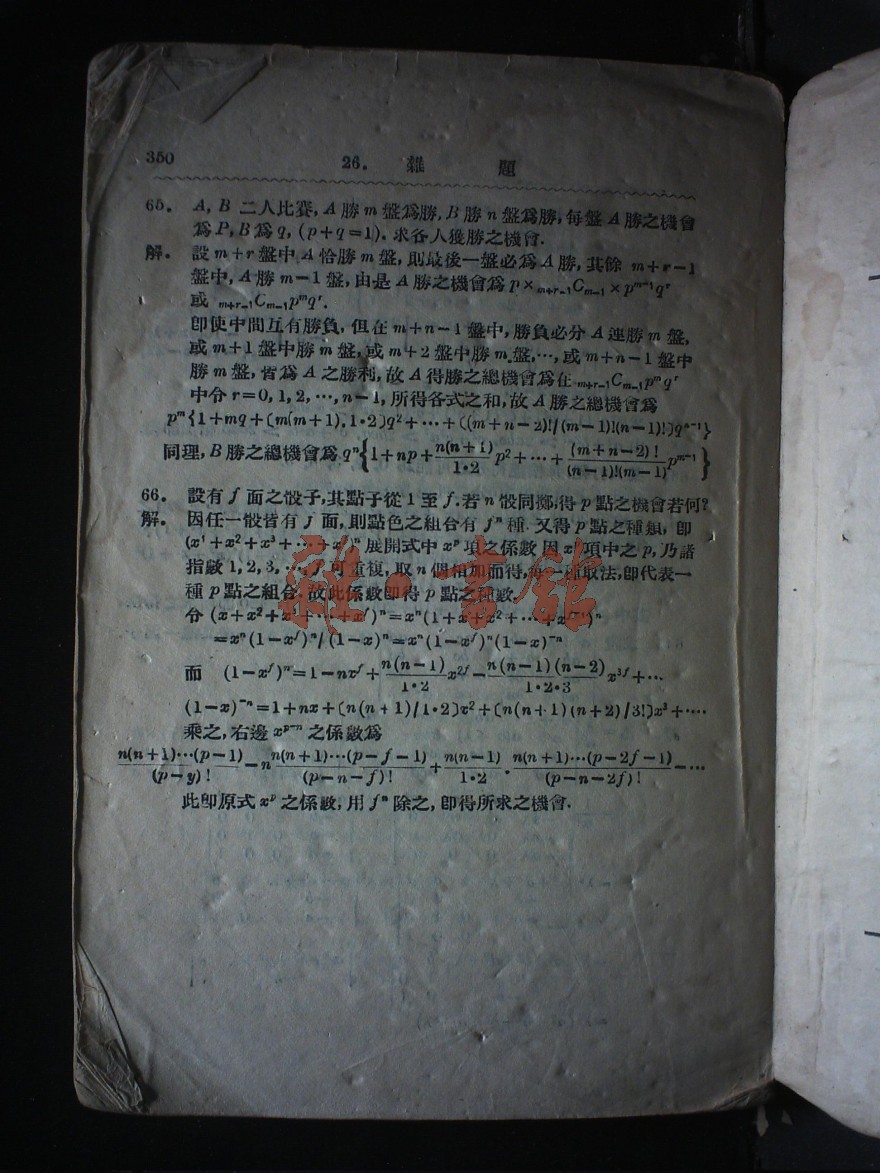 350
26. 雜 題
65. A, B 二人比賽, A 勝 m 盤爲勝, B 勝 n 盤爲勝, 每盤 A 勝之機會
爲 P, B 爲 q, (p+q=1). 求各人獲勝之機會.
解. 設 m+r 盤中 A 恰勝 m 盤, 則最後一盤必爲 A 勝, 其餘 m+r−1
盤中, A 勝 m−1 盤, 由是 A 勝之機會爲 p×ₘ₊ᵣ₋₁Cₘ₋₁×pᵐ⁻¹qʳ
或 ₘ₊ᵣ₋₁Cₘ₋₁pᵐqʳ.
卽使中間互有勝負, 但在 m+n−1 盤中, 勝負必分 A 連勝 m 盤,
或 m+1 盤中勝 m 盤, 或 m+2 盤中勝 m 盤, …, 或 m+n−1 盤中
勝 m 盤, 皆爲 A 之勝利, 故 A 得勝之總機會爲在 ₘ₊ᵣ₋₁Cₘ₋₁pᵐqʳ
中令 r=0, 1, 2, …, n−1, 所得各式之和, 故 A 勝之總機會爲
pᵐ{1+mq+(m(m+1), 1·2)q²+…+((m+n−2)!/(m−1)!(n−1)!)qⁿ⁻¹}
同理, B 勝之總機會爲 qⁿ{1+np+n(n+1)/1·2 p²+…+(m+n−2)!/(n−1)!(m−1)! pᵐ⁻¹}
66. 設有 f 面之骰子, 其點子從 1 至 f. 若 n 骰同擲, 得 p 點之機會若何?
解. 因任一骰皆有 f 面, 則點色之組合有 fⁿ 種. 又得 p 點之種類, 卽
(x¹+x²+x³+…+xᶠ)ⁿ 展開式中 xᵖ 項之係數 因 xᵖ 項中之 p, 乃諸
指數 1, 2, 3, …, f 可重複, 取 n 個相加而得, 每一種取法, 卽代表一
種 p 點之組合. 故此係數卽得 p 點之種數.
令 (x+x²+x³+…+xᶠ)ⁿ=xⁿ(1+x+x²+…+xᶠ⁻¹)ⁿ
=xⁿ(1−xᶠ)ⁿ/(1−x)ⁿ=xⁿ(1−xᶠ)ⁿ(1−x)⁻ⁿ
而 (1−xᶠ)ⁿ=1−nxᶠ+n(n−1)/1·2 x²ᶠ−n(n−1)(n−2)/1·2·3 x³ᶠ+…
(1−x)⁻ⁿ=1+nx+(n(n+1)/1·2)x²+(n(n+1)(n+2)/3!)x³+…
乘之, 右邊 xᵖ⁻ⁿ 之係數爲
n(n+1)…(p−1)/(p−y)!−n n(n+1)…(p−f−1)/(p−n−f)!+n(n−1)/1·2·n(n+1)…(p−2f−1)/(p−n−2f)!−…
此卽原式 xᵖ 之係數, 用 fⁿ 除之, 卽得所求之機會.
雜·書館